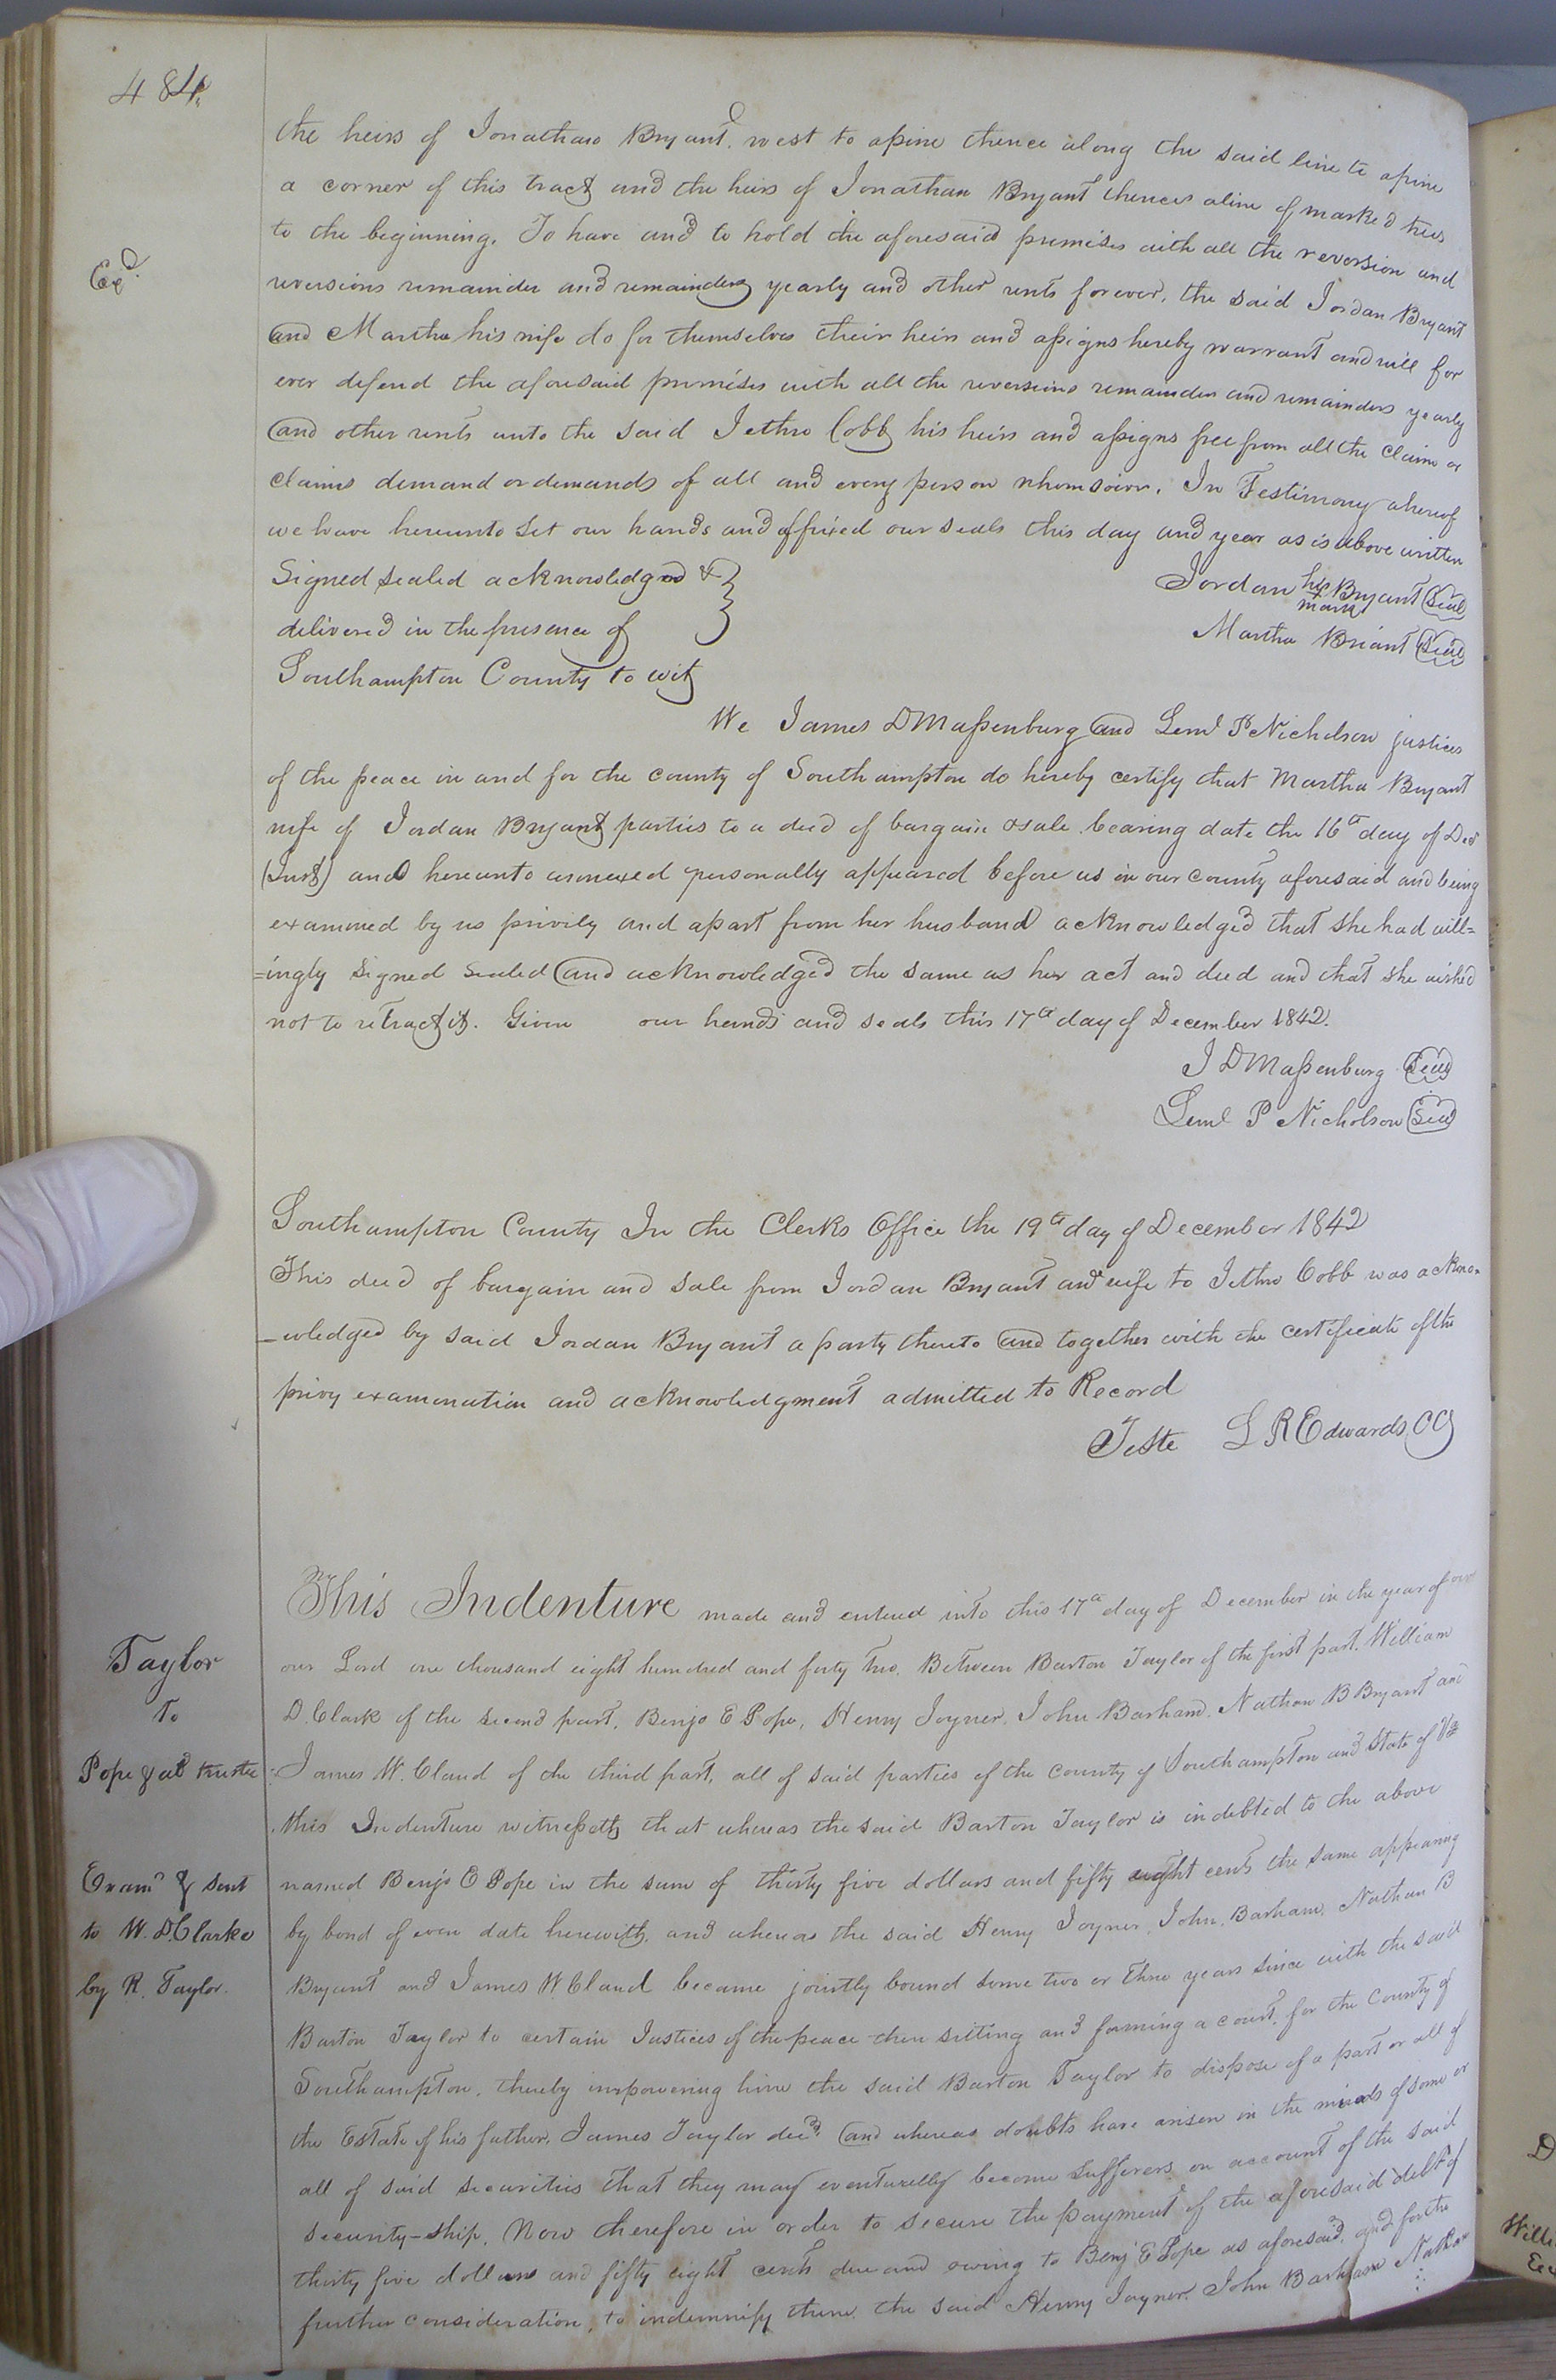 484.
the heirs of Jonathan Bryant d. west to a pine thence along the said line to a pine
a corner of this tract and the heirs of Jonathan Bryant thence a line of marked trees
to the beginning. To have and to hold the aforesaid premises with all the reversion and
Exd.
reversions remainder and remainders yearly and other rents forever, the said Jordan Bryant
and Martha his wife do for themselves their heirs and assigns hereby warrant and will for
ever defend the aforesaid premises with all the reversions remainder and remainders yearly
and other rents unto the said Jethro Cobb his heirs and assigns free from all the claim or
claims demand or demands of all and every person whomsoever. In Testimony whereof
we have hereunto set our hands and affixed our seals this day and year as is above written
Signed sealed acknowledged &
delivered in the presence of
Jordan his mark Bryant Seal
Martha Briant Seal
Southampton County to wit
We James D Massenburg and Leml P Nicholson justices
of the peace in and for the county of Southampton do hereby certify that Martha Bryant
wife of Jordan Bryant parties to a deed of bargain & sale bearing date the 16th day of Decr
(Inst) and hereunto annexed personally appeared before us in our county aforesaid and being
examined by us privily and apart from her husband acknowledged that she had will=
=ingly signed sealed and acknowledged the same as her act and deed and that she wished
not to retract it. Given our hands and seals this 17th day of December 1842.
J D Massenburg Seal
Leml P Nicholson Seal
Southampton County In the Clerks Office the 19th day of December 1842
This deed of bargain and sale from Jordan Bryant and wife to Jethro Cobb was ackno-
-wledged by said Jordan Bryant a party thereto and together with the certificate of the
privy examination and acknowledgment admitted to Record
Teste L R Edwards CC
This Indenture made and entered into this 17th day of December in the year of our
Taylor
To
Pope & al trustee
our Lord one thousand eight hundred and forty two. Between Barton Taylor of the first part. William
D. Clark of the second part, Benja E Pope, Henry Joyner, John Barham, Nathan B Bryant and
James W. Claud of the third part, all of said parties of the county of Southampton and State of Va
this Indenture witnesseth that whereas the said Barton Taylor is indebted to the above
Examd & sent
to W. D. Clarke
by R. Taylor.
named Benja E Pope in the sum of thirty five dollars and fifty eight cents the same appearing
by bond of even date herewith, and whereas the said Henry Joyner, John, Barham, Nathan B
Bryant and James W. Claud became jointly bound some two or three years since with the said
Barton Taylor to certain Justices of the peace then sitting and forming a court, for the County of
Southampton, thereby impowering him the said Barton Taylor to dispose of a part or all of
the Estate of his father, James Taylor decd. and whereas doubts have arisen in the minds of some or
all of said securities that they may eventually become sufferers on account of the said
security-ship, Now therefore in order to secure the payment of the aforesaid debt of
thirty five dollars and fifty eight cents due and owing to Benj E Pope as aforesaid, and for the
further consideration, to indemnify them the said Henry Joyner, John Barham Nathan